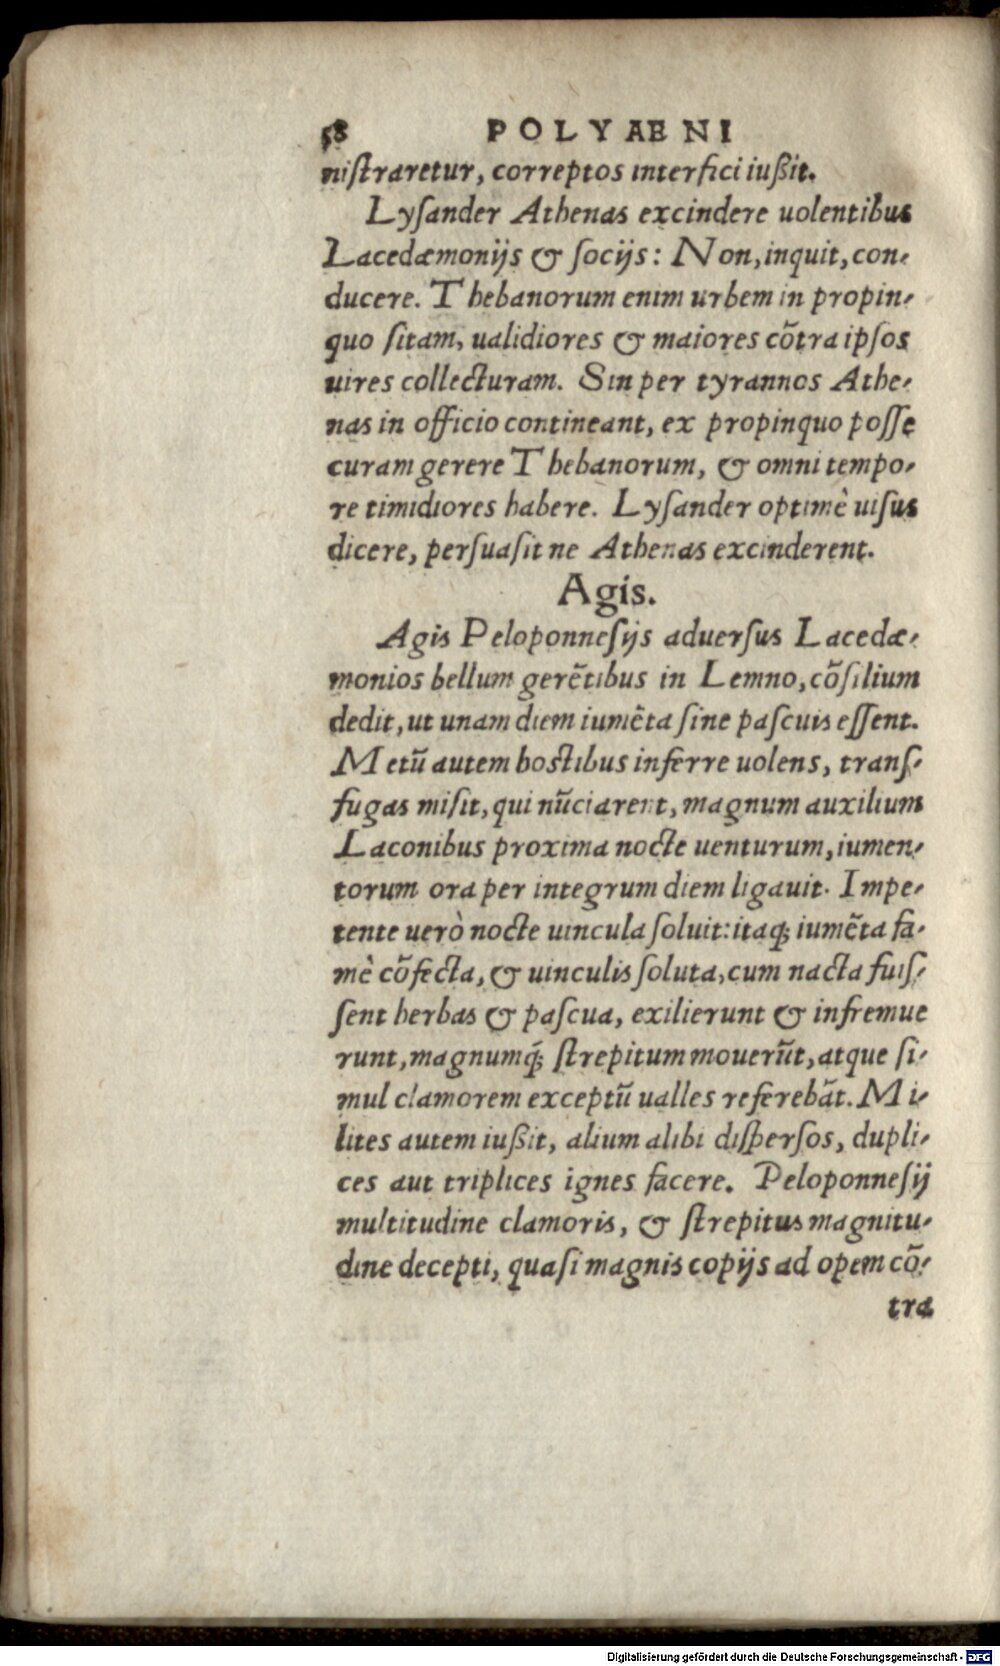 58 POLYAENI
niſtraretur, correptos interfici iußit.
Lyſander Athenas excindere uolentibus
Lacedæmonijs & ſocijs: Non, inquit, con-
ducere. Thebanorum enim urbem in propin-
quo ſitam, ualidiores & maiores cõtra ipſos
uires collecturam. Sin per tyrannos Athe-
nas in officio contineant, ex propinquo poſſe
curam gerere Thebanorum, & omni tempo-
re timidiores habere. Lyſander optimè uiſus
dicere, perſuaſit ne Athenas excinderent.
Agis.
Agis Peloponneſijs aduerſus Lacedæ-
monios bellum gerẽtibus in Lemno, cõſilium
dedit, ut unam diem iumẽta ſine paſcuis eſſent.
Metũ autem hostibus inferre uolens, tranſ-
fugas miſit, qui nũciarent, magnum auxilium
Laconibus proxima nocte uenturum, iumen-
torum ora per integrum diem ligauit. Impe-
tente uerò nocte uincula ſoluit: itaq́; iumẽta fa-
mè cõfecta, & uinculis ſoluta, cum nacta fuiſ-
ſent herbas & paſcua, exilierunt & infremue
runt, magnumq́; ſtrepitum mouerũt, atque ſi-
mul clamorem exceptũ ualles referebãt. Mi-
lites autem iußit, alium alibi diſperſos, dupli-
ces aut triplices ignes facere. Peloponneſij
multitudine clamoris, & ſtrepitus magnitu-
dine decepti, quaſi magnis copijs ad opem cõ-
tra
Digitalisierung gefördert durch die Deutsche Forschungsgemeinschaft - DFG